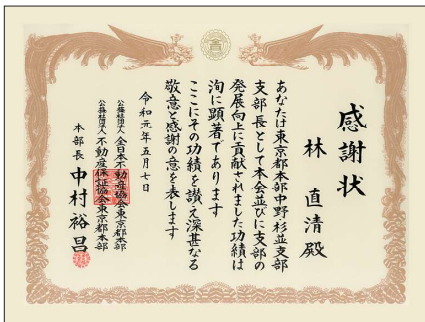 感謝状
林 直清 殿
あなたは東京都本部中野杉並支部
支部長として本会並びに支部の
発展向上に貢献されました功績は
洵に顕著であります
ここにその功績を讃え深甚なる
敬意と感謝の意を表します
令和元年五月七日
公益社団法人 全日本不動産協会東京都本部
公益社団法人 不動産保証協会東京都本部
本部長 中村裕昌